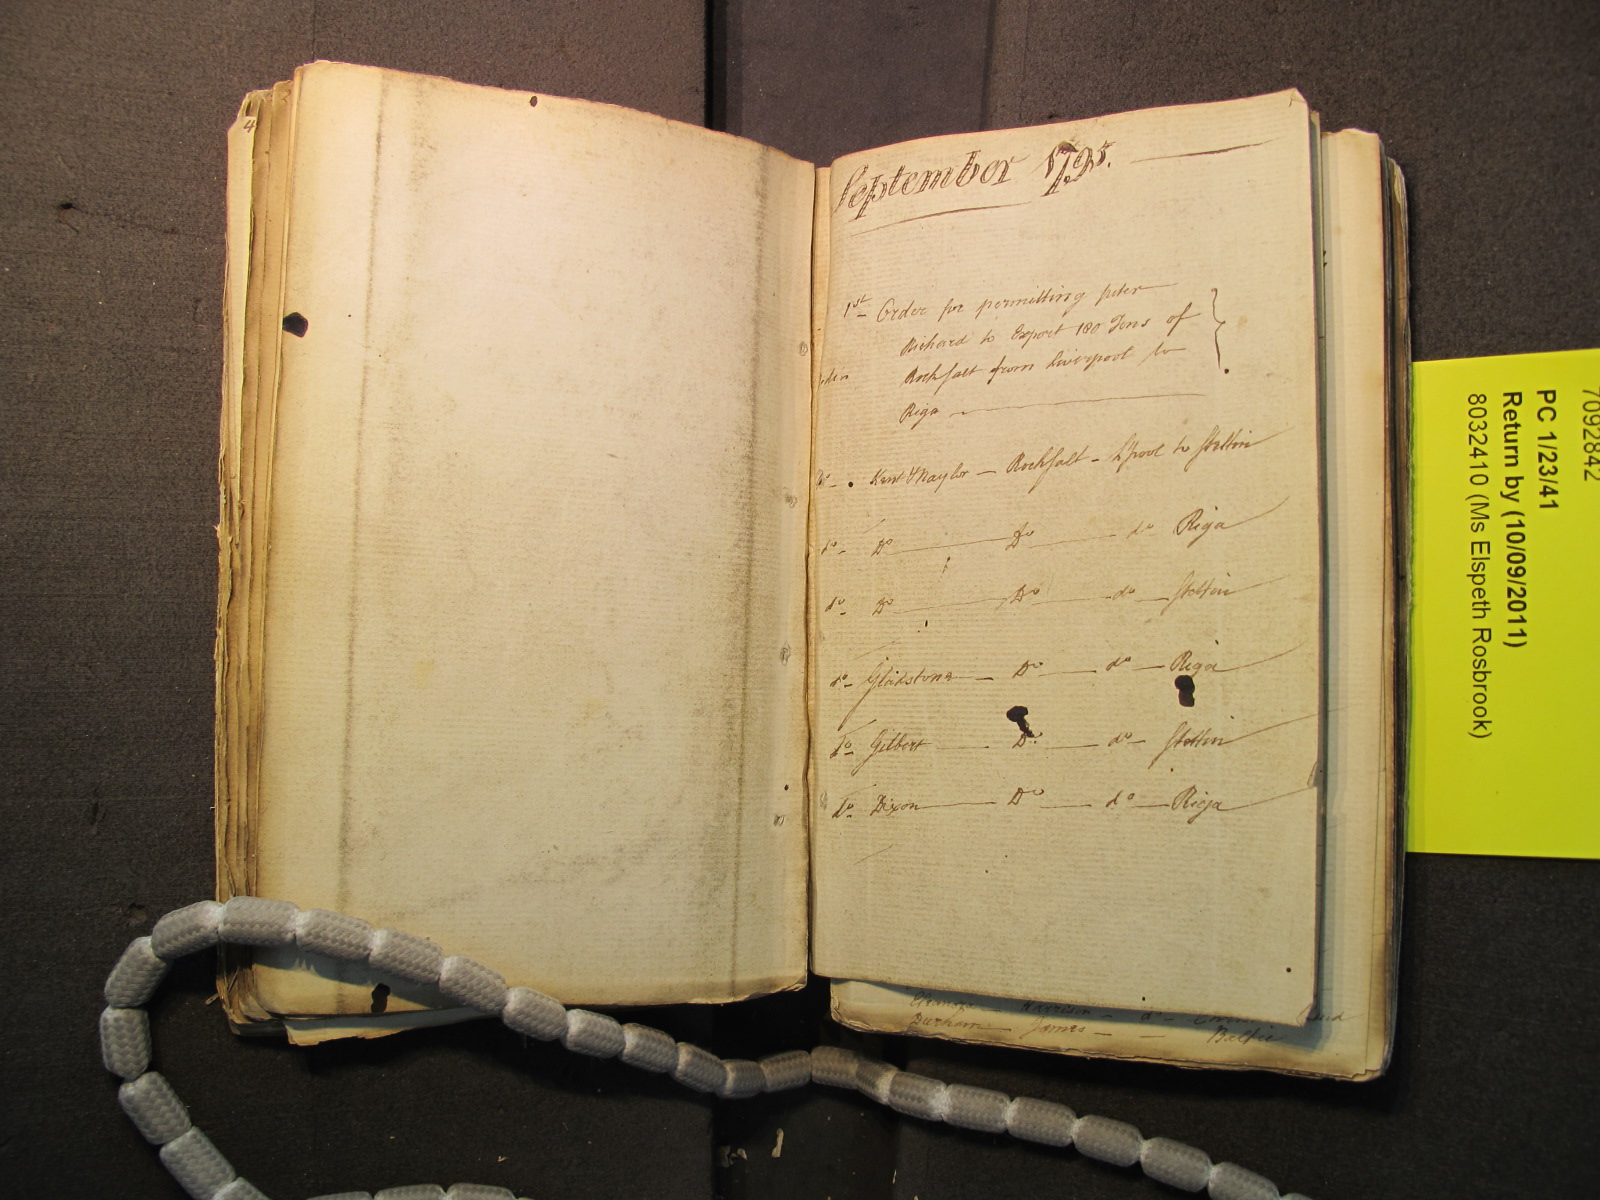 4
September 1795.
1st Order for permitting peter
Richard to Export 180 Tons of
Rockfalt from Liverpool to
Riga
do Kent & Naylor — Rockfalt - Lpool to Stettin
do Do Do do Riga
do Do Do do Stettin
do Gladstone Do do Riga
Do Gilbert Do do Stettin
Do Dixon Do do Riga
Harrison do
Durham James Baltic
7092842
PC 1/23/41
Return by (10/09/2011)
8032410 (Ms Elspeth Rosbrook)